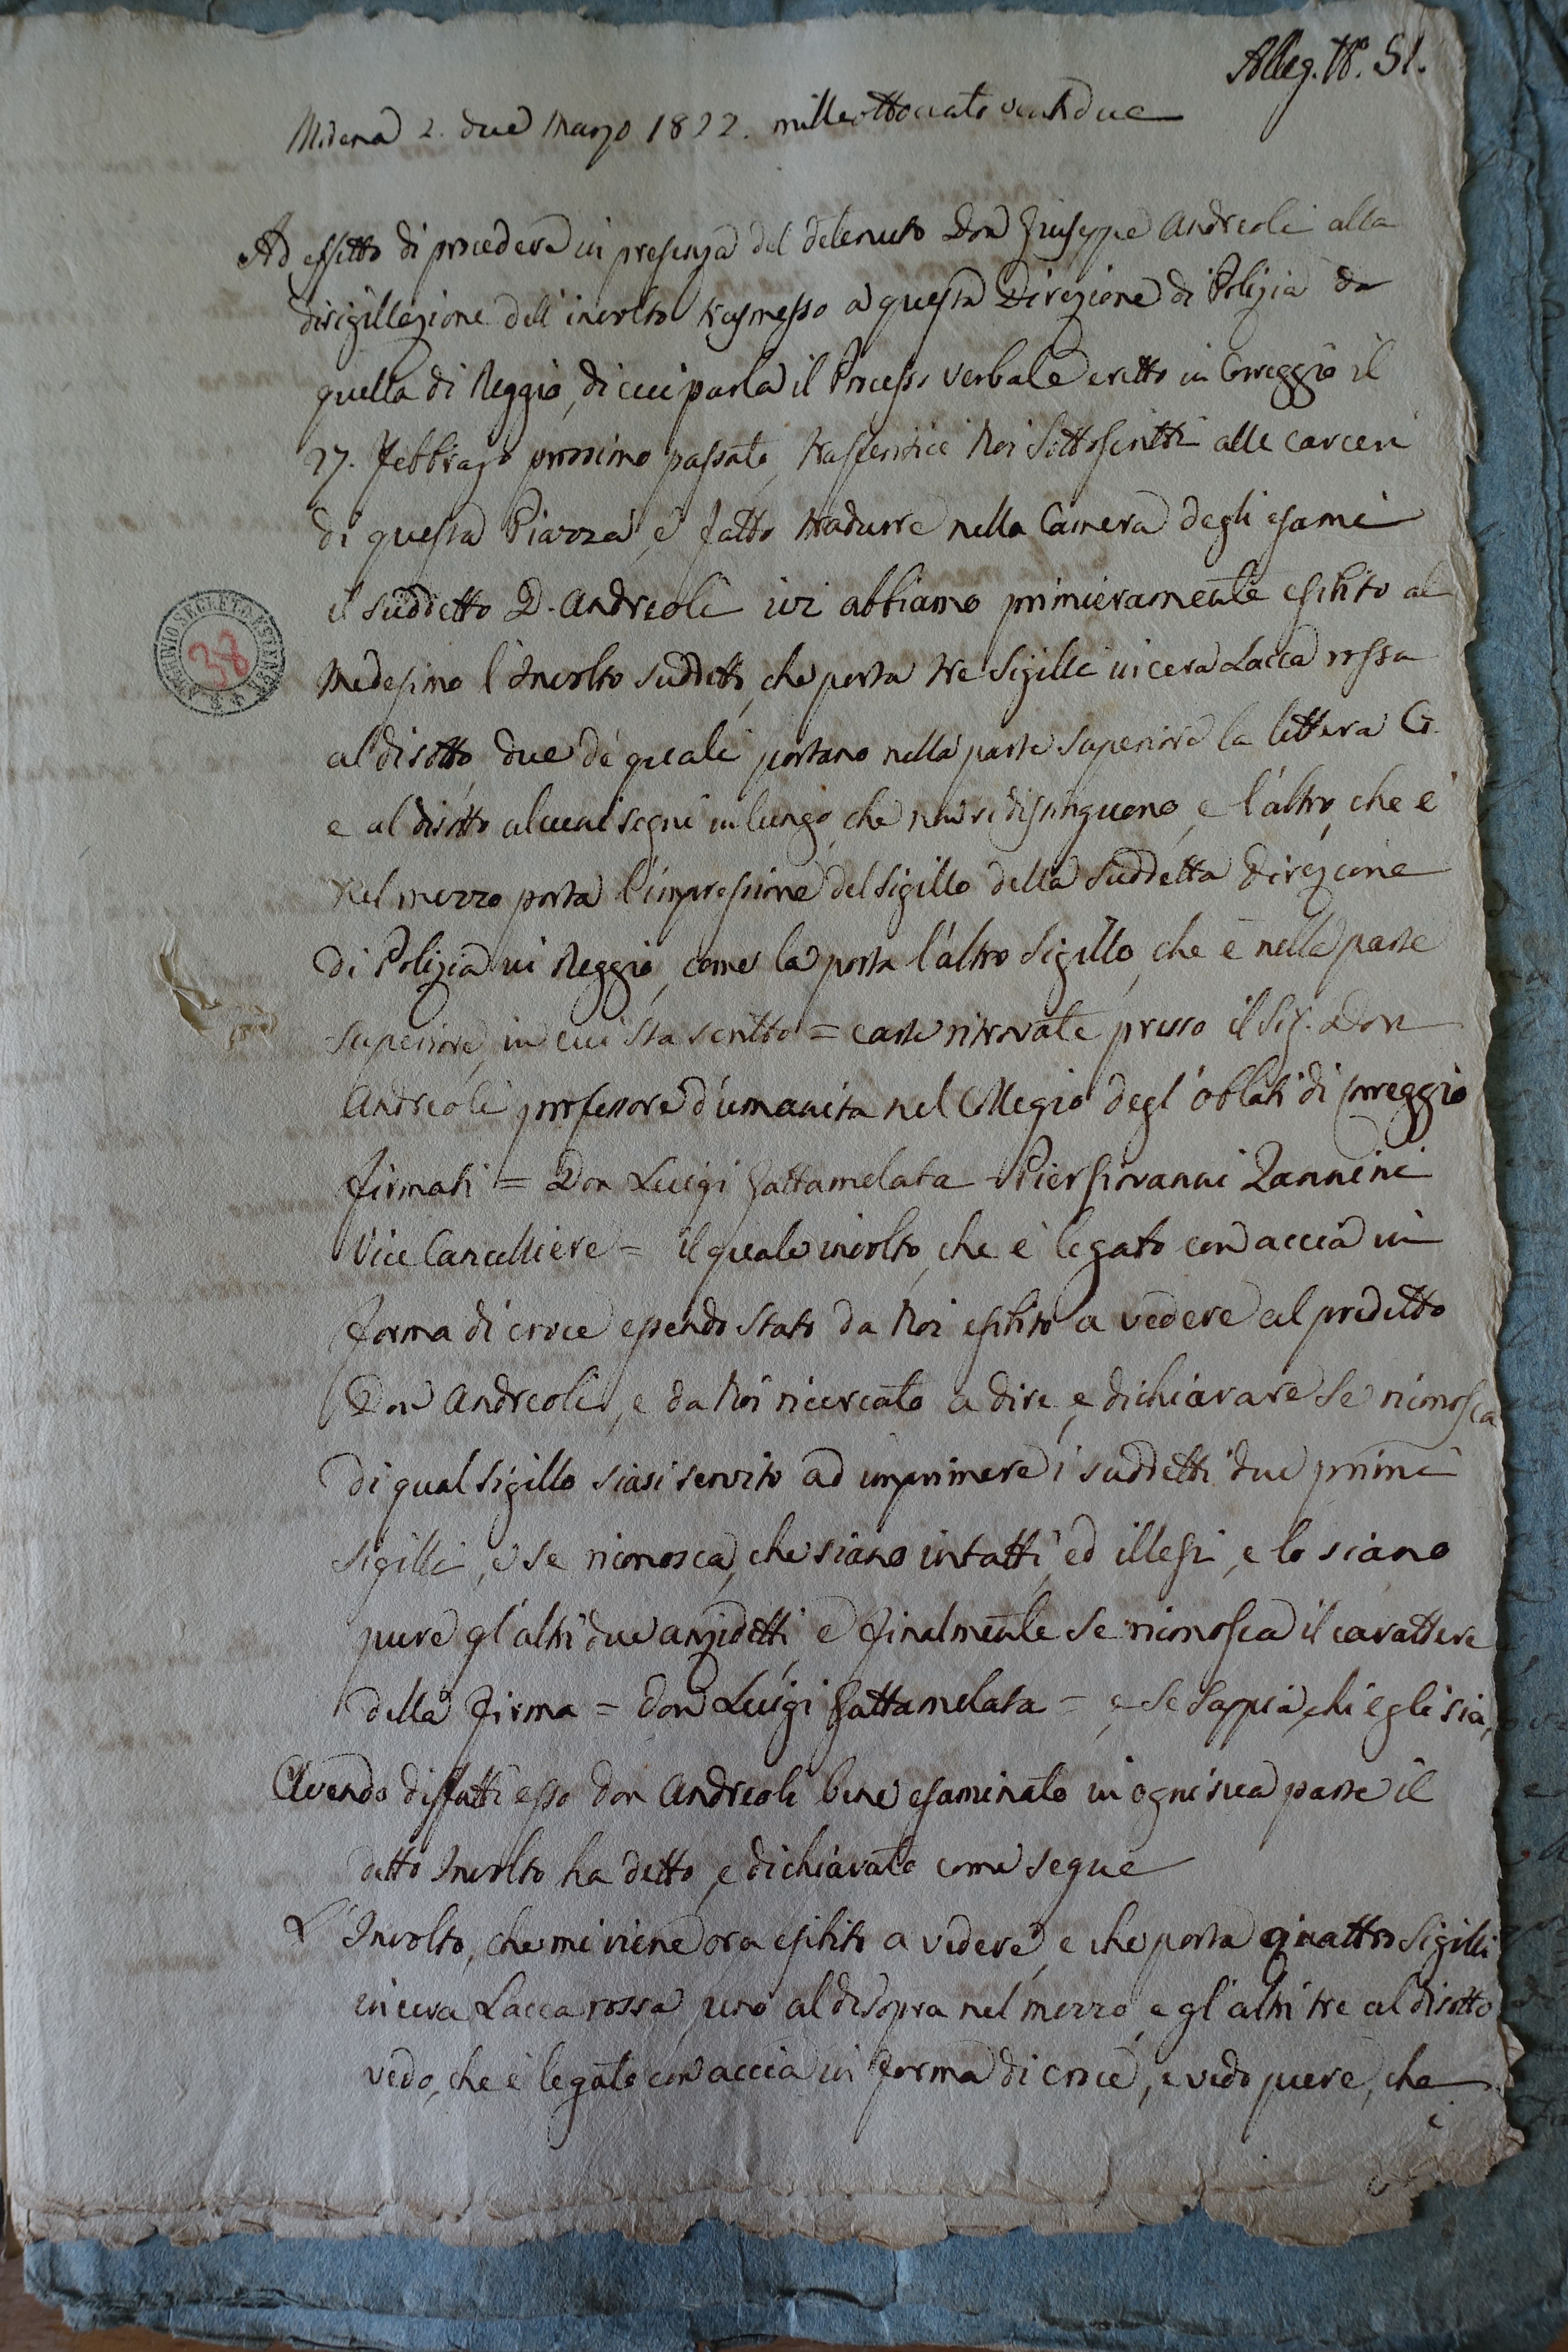 Alleg. N°. 51.
Modena 2. due Marzo 1822. milleottocento ventidue
Ad effetto di procedere in presenza del detenuto Don Giuseppe Andreoli alla
disigillazione dell'involto trasmesso a questa Direzione di Polizia da
quella di Reggio, di cui parla il Processo verbale eretto in Correggio il
27. Febbrajo prossimo passato, trasferitici Noi Sottoscritti alle carceri
di questa Piazza, e fatto tradurre nella Camera degli esami
il suddetto D. Andreoli ivi abbiamo primieramente esibito al
medesimo l'Involto suddetto, che porta tre Sigilli in cera Lacca rossa
al disotto, due de quali portano nella parte superiore la lettera G.
e al disotto alcuni segni in lungo, che non si distinguono, e l'altro, che è
nel mezzo porta l'impressione del sigillo della suddetta Direzione
di Polizia in Reggio, come la porta l'altro Sigillo, che è nella parte
superiore, in cui sta scritto = carte ritrovate presso il Sig. Don
Andreoli professore d'umanità nel Collegio degl'Oblati di Correggio
firmati = Don Luigi Gattamelata Pier Giovanni Zannini
Vice Cancelliere = il quale involto, che è legato con accia in
forma di croce essendo stato da Noi esibito a vedere al predetto
Don Andreoli, e da Noi ricercato a dire, e dichiarare se riconosca
di qual sigillo siasi servito ad imprimere i suddetti due primi
sigilli, e se riconosca, che siano intatti, ed illesi, e lo siano
pure gl'altri due anzidetti, e finalmente se riconosca il carattere
della firma = Don Luigi Gattamelata = e se sappia, chi egli sia,
Avendo diffatti esso Don Andreoli bene esaminato in ogni sua parte il
detto Involto ha detto, e dichiarato come segue
L'Involto, che mi viene ora esibito a vedere, e che porta quattro Sigilli
in cera Lacca rossa, uno al disopra nel mezzo, e gl'altri tre al disotto
vedo, che è legato con accia in forma di croce, e vedo pure, che
i
ARCHIVIO SEGRETO ESTENSE
38